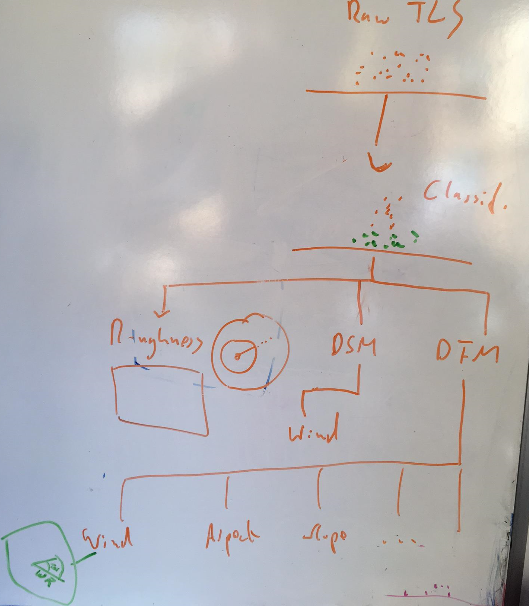 Raw TLS
Classif.
Roughness
DSM
DTM
Wind
Wind
Aspect
slope
.....